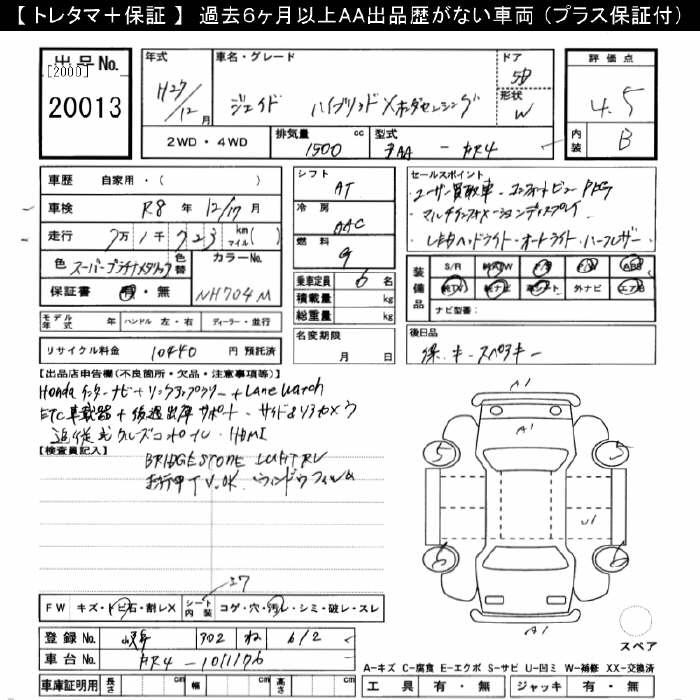 【 トレタマ＋保証 】 過去６ヶ月以上ＡＡ出品歴がない車両（プラス保証付）
出品No.
[2000]
20013
年式
H27/12月
車名・グレード
ジェイド ハイブリッドXホンダセンシング
ドア
5D
形状
W
評価点
4.5
内装
B
2WD・4WD
排気量
1500 cc
型式
DAA - FR4
車歴 自家用・( )
車検 R8年 12/17月
走行 7万1千723 kmマイル( )
色 スーパープラチナメタリック
色替
カラーNo.
NH704M
保証書 有・無
シフト
AT
冷房
AAC
燃料
G
乗車定員 6名
積載量 kg
総重量 kg
セールスポイント
・ユーザー買取車
・マルチインフォメーションディスプレイ
・LEDヘッドライト・オートライト・ハーフレザー
装備品
S/R 純AW P/S P/W ABS
純TV 純ナビ 革シート 外ナビ エアB
ナビ型番：
モデル年式 年
ハンドル 左・右
ディーラー・並行
名変期限
月 日
後日品
保・キー・スペアキー
リサイクル料金 10440 円 預託済
【出品店申告欄(不良箇所・欠品・注意事項等)】
Hondaインターナビ+リンクアップフリー+LaneWatch
ETC車載器+後退出庫サポート・サイド&リアカメラ
追従式クルーズコントロール・HDMI
【検査員記入】
BRIDGESTONE LUFT RV
走行中TV OK ウィンドウフィルム
FW キズ・トビ石・割レX
シート内装
コゲ・穴・汚レ・シミ・破レ・スレ
登録No. 302 ね 612
車台No. FR4 - 1011176
車庫証明用 長さ cm 幅 cm 高さ cm
A1
A1
5
5
U1
6
6
A1
スペア
A−キズ C−腐食 E−エクボ S−サビ U−凹ミ W−補修 XX−交換済
工具 有・無 ジャッキ 有・無